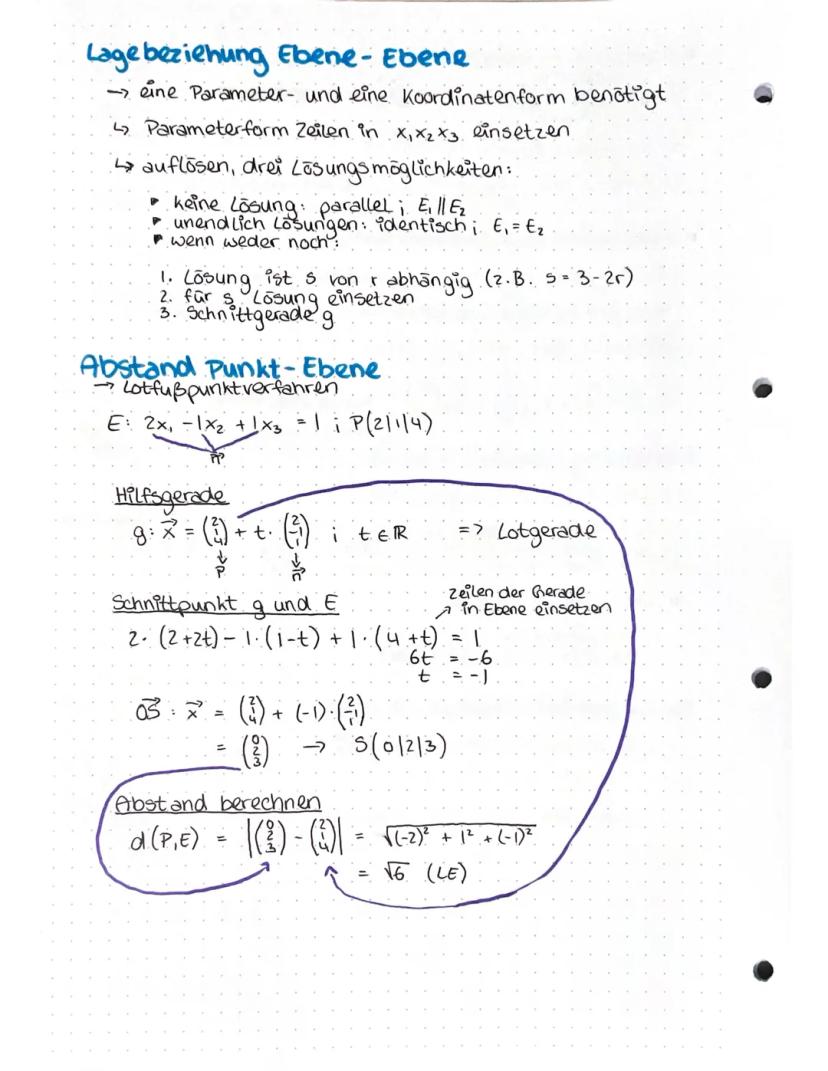 Lagebeziehung Ebene - Ebene
→ eine Parameter- und eine Koordinatenform benötigt
↳ Parameterform Zeilen in x₁x₂x₃ einsetzen
↳ auflösen, drei Lösungsmöglichkeiten:
▸ keine Lösung: parallel; E₁ ∥ E₂
▸ unendlich Lösungen: identisch; E₁ = E₂
▸ wenn weder noch:
1. Lösung ist s von r abhängig (z.B. s = 3 - 2r)
2. für s Lösung einsetzen
3. Schnittgerade g
Abstand Punkt - Ebene
→ Lotfußpunktverfahren
E: 2x₁ - 1x₂ + 1x₃ = 1 ; P(2|1|4)
n⃗
Hilfsgerade
g: x⃗ = (2 1 4) + t · (2 -1 1) ; t ∈ ℝ => Lotgerade
↓ ↓
P n⃗
Schnittpunkt g und E
zeilen der Gerade
↗ in Ebene einsetzen
2 · (2+2t) - 1 · (1-t) + 1 · (4+t) = 1
6t = -6
t = -1
OS⃗ : x⃗ = (2 1 4) + (-1) · (2 -1 1)
= (0 2 3) → S(0|2|3)
Abstand berechnen
d(P,E) = |(0 2 3) - (2 1 4)| = √((-2)² + 1² + (-1)²)
= √6 (LE)